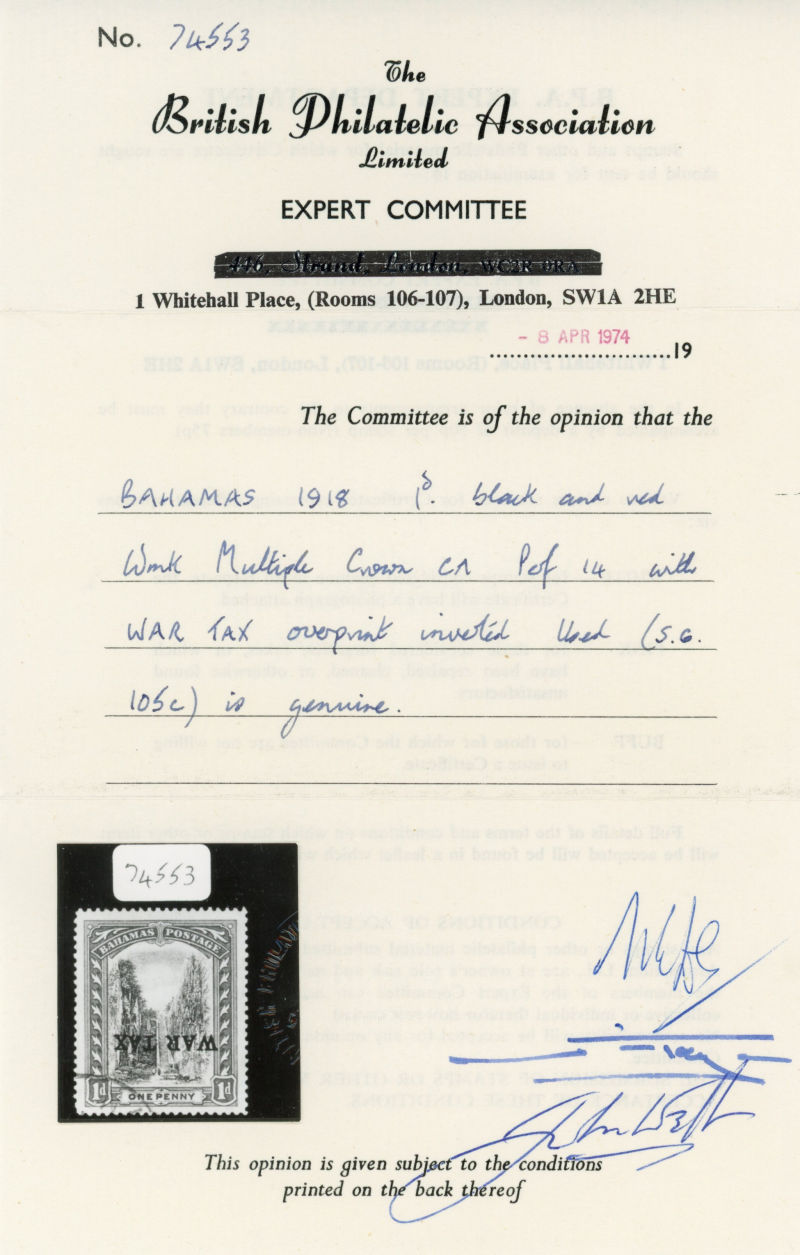 No. 74553
The
British Philatelic Association
Limited
EXPERT COMMITTEE
446, Strand, London, WC2R 0RA
1 Whitehall Place, (Rooms 106-107), London, SW1A 2HE
- 8 APR 1974
..........................19
The Committee is of the opinion that the
BAHAMAS 1918 1d. black and red
Wmk Multiple Crown CA Perf 14 with
WAR TAX overprint inverted Used (S.G.
105c) is genuine.
74553
BAHAMAS POSTAGE
WAR TAX
1d ONE PENNY 1d
This opinion is given subject to the conditions
printed on the back thereof